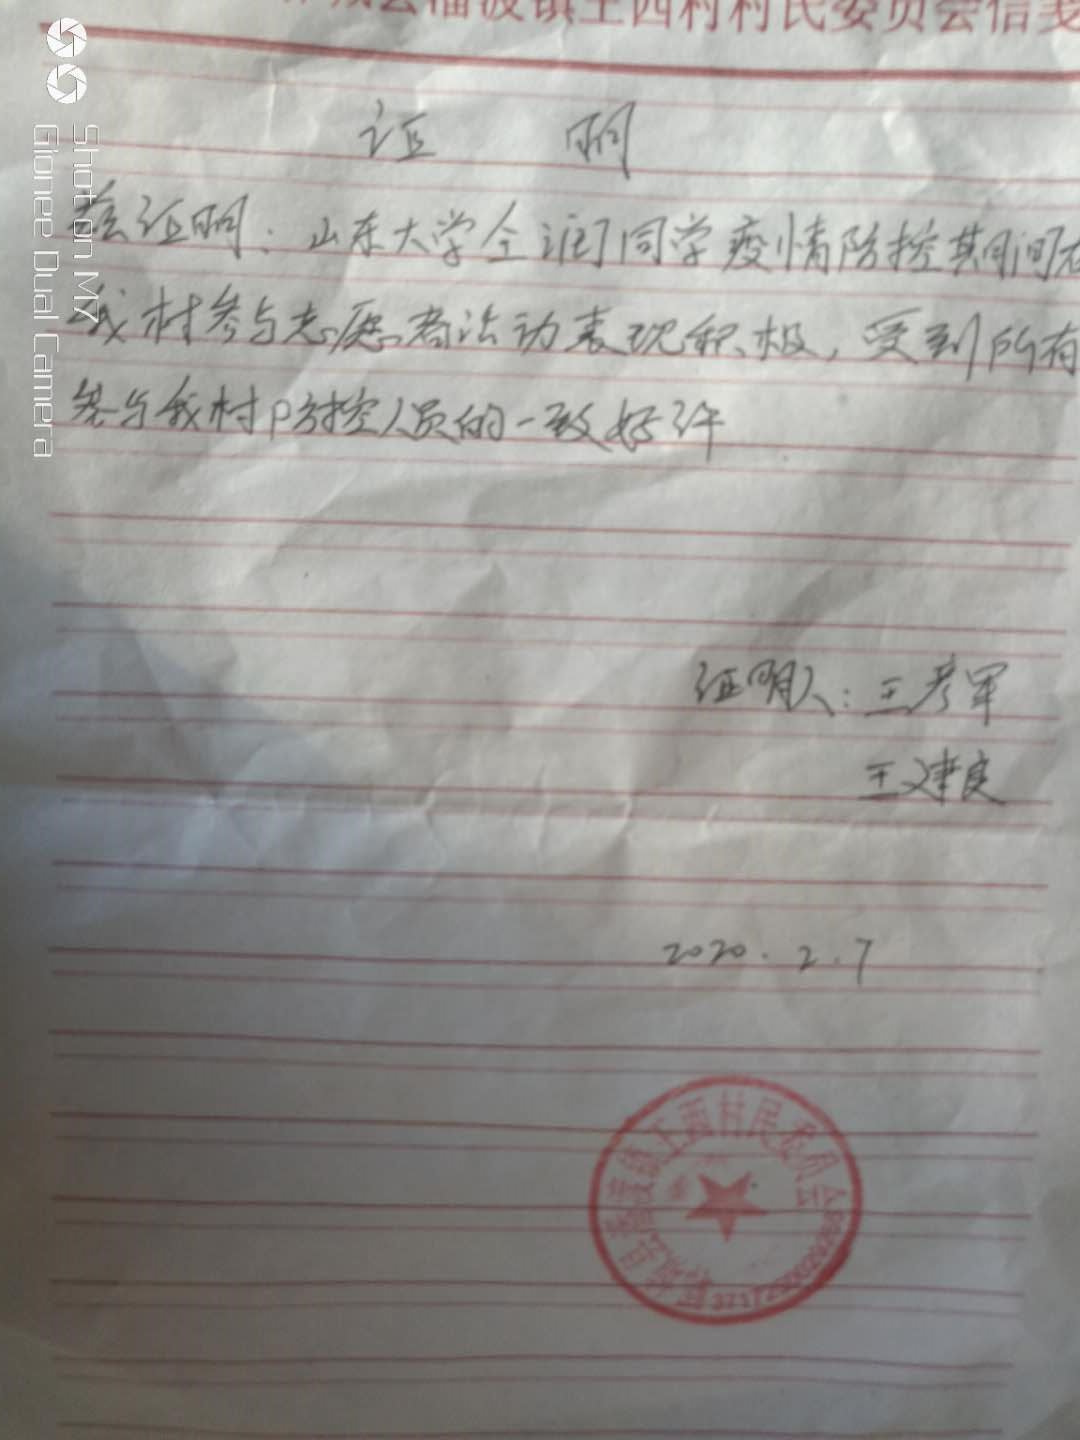 镇王西村村民委员会信笺
证 明
兹证明：山东大学仝润同学疫情防控期间在
我村参与志愿者活动表现积极，受到所有
参与我村防控人员的一致好评
证明人：王彦军
王建良
2020.2.7
镇王西村民委员会
Shot on M7
Gionee Dual Camera